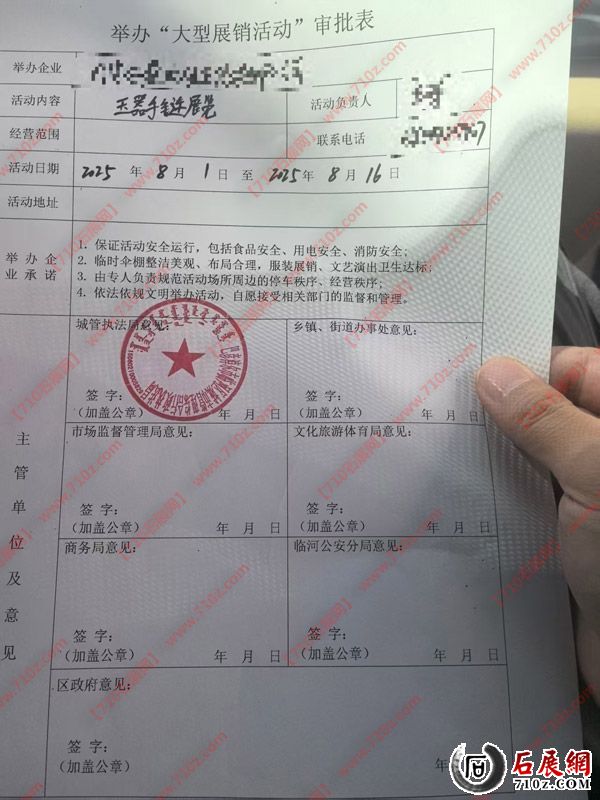 举办“大型展销活动”审批表
举办企业
活动内容 玉器手链展览 活动负责人
经营范围 联系电话
活动日期 2025 年 8 月 1 日 至 2025 年 8 月 16 日
活动地址
举办企业承诺
1. 保证活动安全运行，包括食品安全、用电安全、消防安全；
2. 临时伞棚整洁美观、布局合理，服装展销、文艺演出卫生达标；
3. 由专人负责规范活动场所周边的停车秩序、经营秩序；
4. 依法依规文明举办活动，自愿接受相关部门的监督和管理。
主管单位及意见
城管执法局意见： 乡镇、街道办事处意见：
签字： 签字：
（加盖公章） 年 月 日 （加盖公章） 年 月 日
市场监督管理局意见： 文化旅游体育局意见：
签字： 签字：
（加盖公章） 年 月 日 （加盖公章） 年 月 日
商务局意见： 临河公安分局意见：
签字： 签字：
（加盖公章） 年 月 日 （加盖公章） 年 月 日
区政府意见：
签字：
（加盖公章） 年
【710石展网】www.710z.com
石展網
710Z.COM